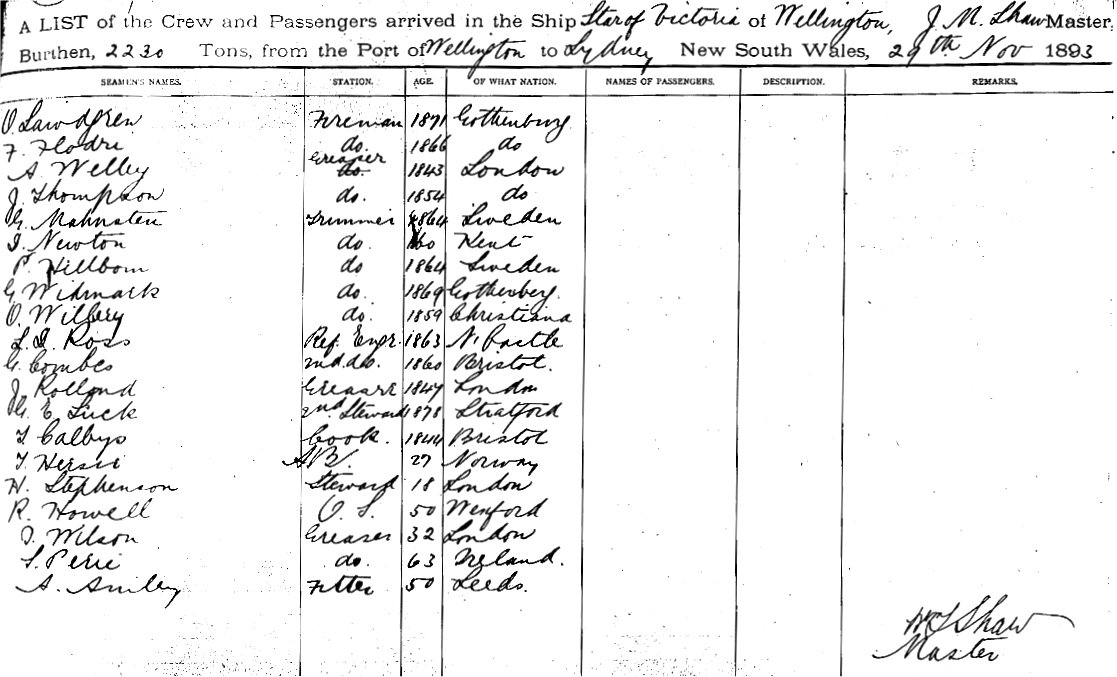 A LIST of the Crew and Passengers arrived in the Ship Star of Victoria of Wellington, J. M. Shaw Master,
Burthen, 2230 Tons, from the Port of Wellington to Sydney New South Wales, 29th Nov 1893
SEAMEN'S NAMES. STATION. AGE. OF WHAT NATION. NAMES OF PASSENGERS. DESCRIPTION. REMARKS.
O. Fireman 1871 Gothenburg
F. Flodri do. 1866 do
A. Welley Greaser do. 1843 London
J. Thompson do. 1854 do
G. Mahnsten Trimmer 1864 Sweden
I. Newton do. 60 Kent
P. Hillbom do 1864 Sweden
G. Widmark do. 1869 Gothenberg.
O. Wilbery do. 1859 Christiana
L. I. Ross Ref. Engr. 1863 N. Castle
G. Combes 2nd. do. 1860 Bristol.
J. Rollond Greaser 1847 London
G. E. Luck 2nd Steward 1878 Stratford
T Calbys Cook. 1844 Bristol
T. AB. 27 Norway
H. Stephenson Steward 18 London
R. Howell O. S. 50 Wexford
J. Wilson Greaser 32 London
S. Perie do. 63 Ireland.
A. Fitter 50 Leeds.
Shaw
Master